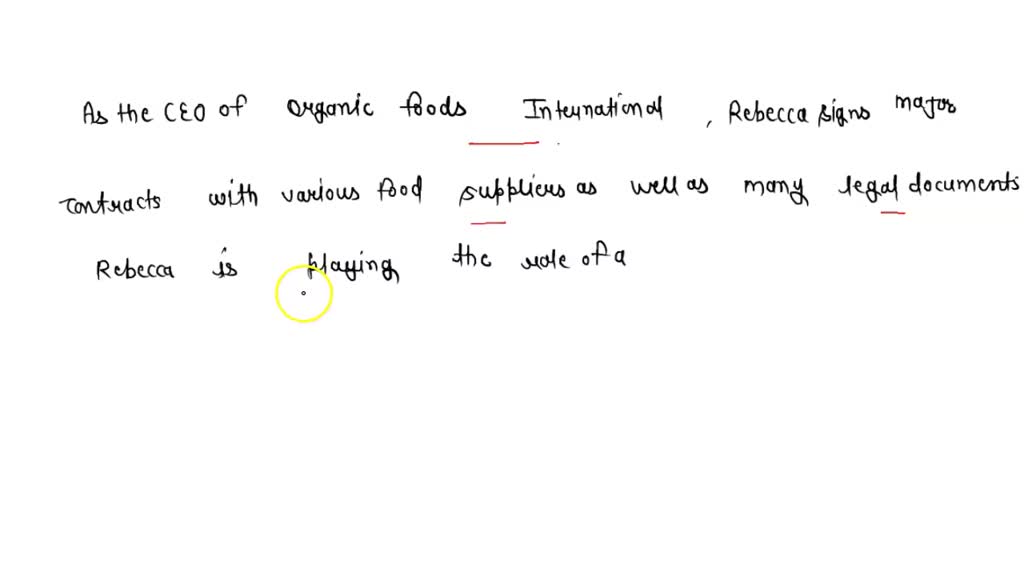 As the CEO of Organic foods International, Rebecca signs major
contracts with various food suppliers as well as many legal documents
Rebecca is playing the role of a